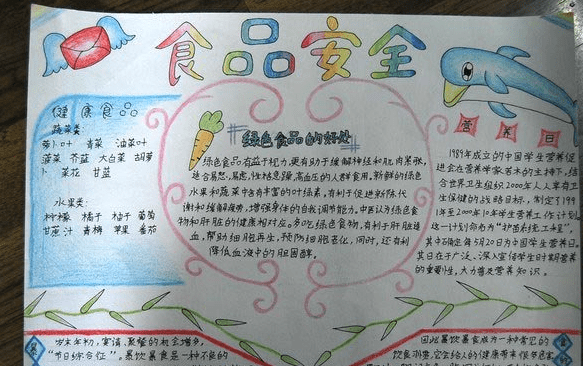 食品安全
健康食品
蔬菜类:
萝卜叶 青菜 油菜叶
菠菜 芥蓝 大白菜 胡萝
卜 菜花 甘蓝
水果类:
柠檬 橘子 柚子 葡萄
甘蔗汁 青梅 苹果 番茄
绿色食品的好处
绿色食品有益于视力,更有助于缓解神经和肌肉紧张,
适合易怒,易虑,性格急躁,高血压的人群食用,新鲜的绿色
水果和蔬菜中含有丰富的叶绿素,有利于促进新陈代
谢和缓解疲劳,增强身体的自我调节能力。中医认为绿色食
物和肝脏的健康相对应。多吃绿色食物,有利于肝脏造
血,帮助细胞再生,预防细胞老化,同时,还有利
降低血液中的胆固醇。
营养日
1989年成立的中国学生营养促
进会在营养学家
合世界卫生组织2000年人人享有卫
生保健的战略目标,制定了199
1年至2000年10年学生营养工作计划
这一计划命名为"护苗系统工程",
其中确定每年5月20日为中国学生营养日。
其目在于广泛、深入宣传学生时期营养
的重要性,大力普及营养知识。
岁末年初,宴请、聚餐的机会增多,
"节日综合征"。暴饮暴食是一种不良的
因此暴饮暴食成为一种常见的
饮食习惯,它会给人的健康带来很多危害